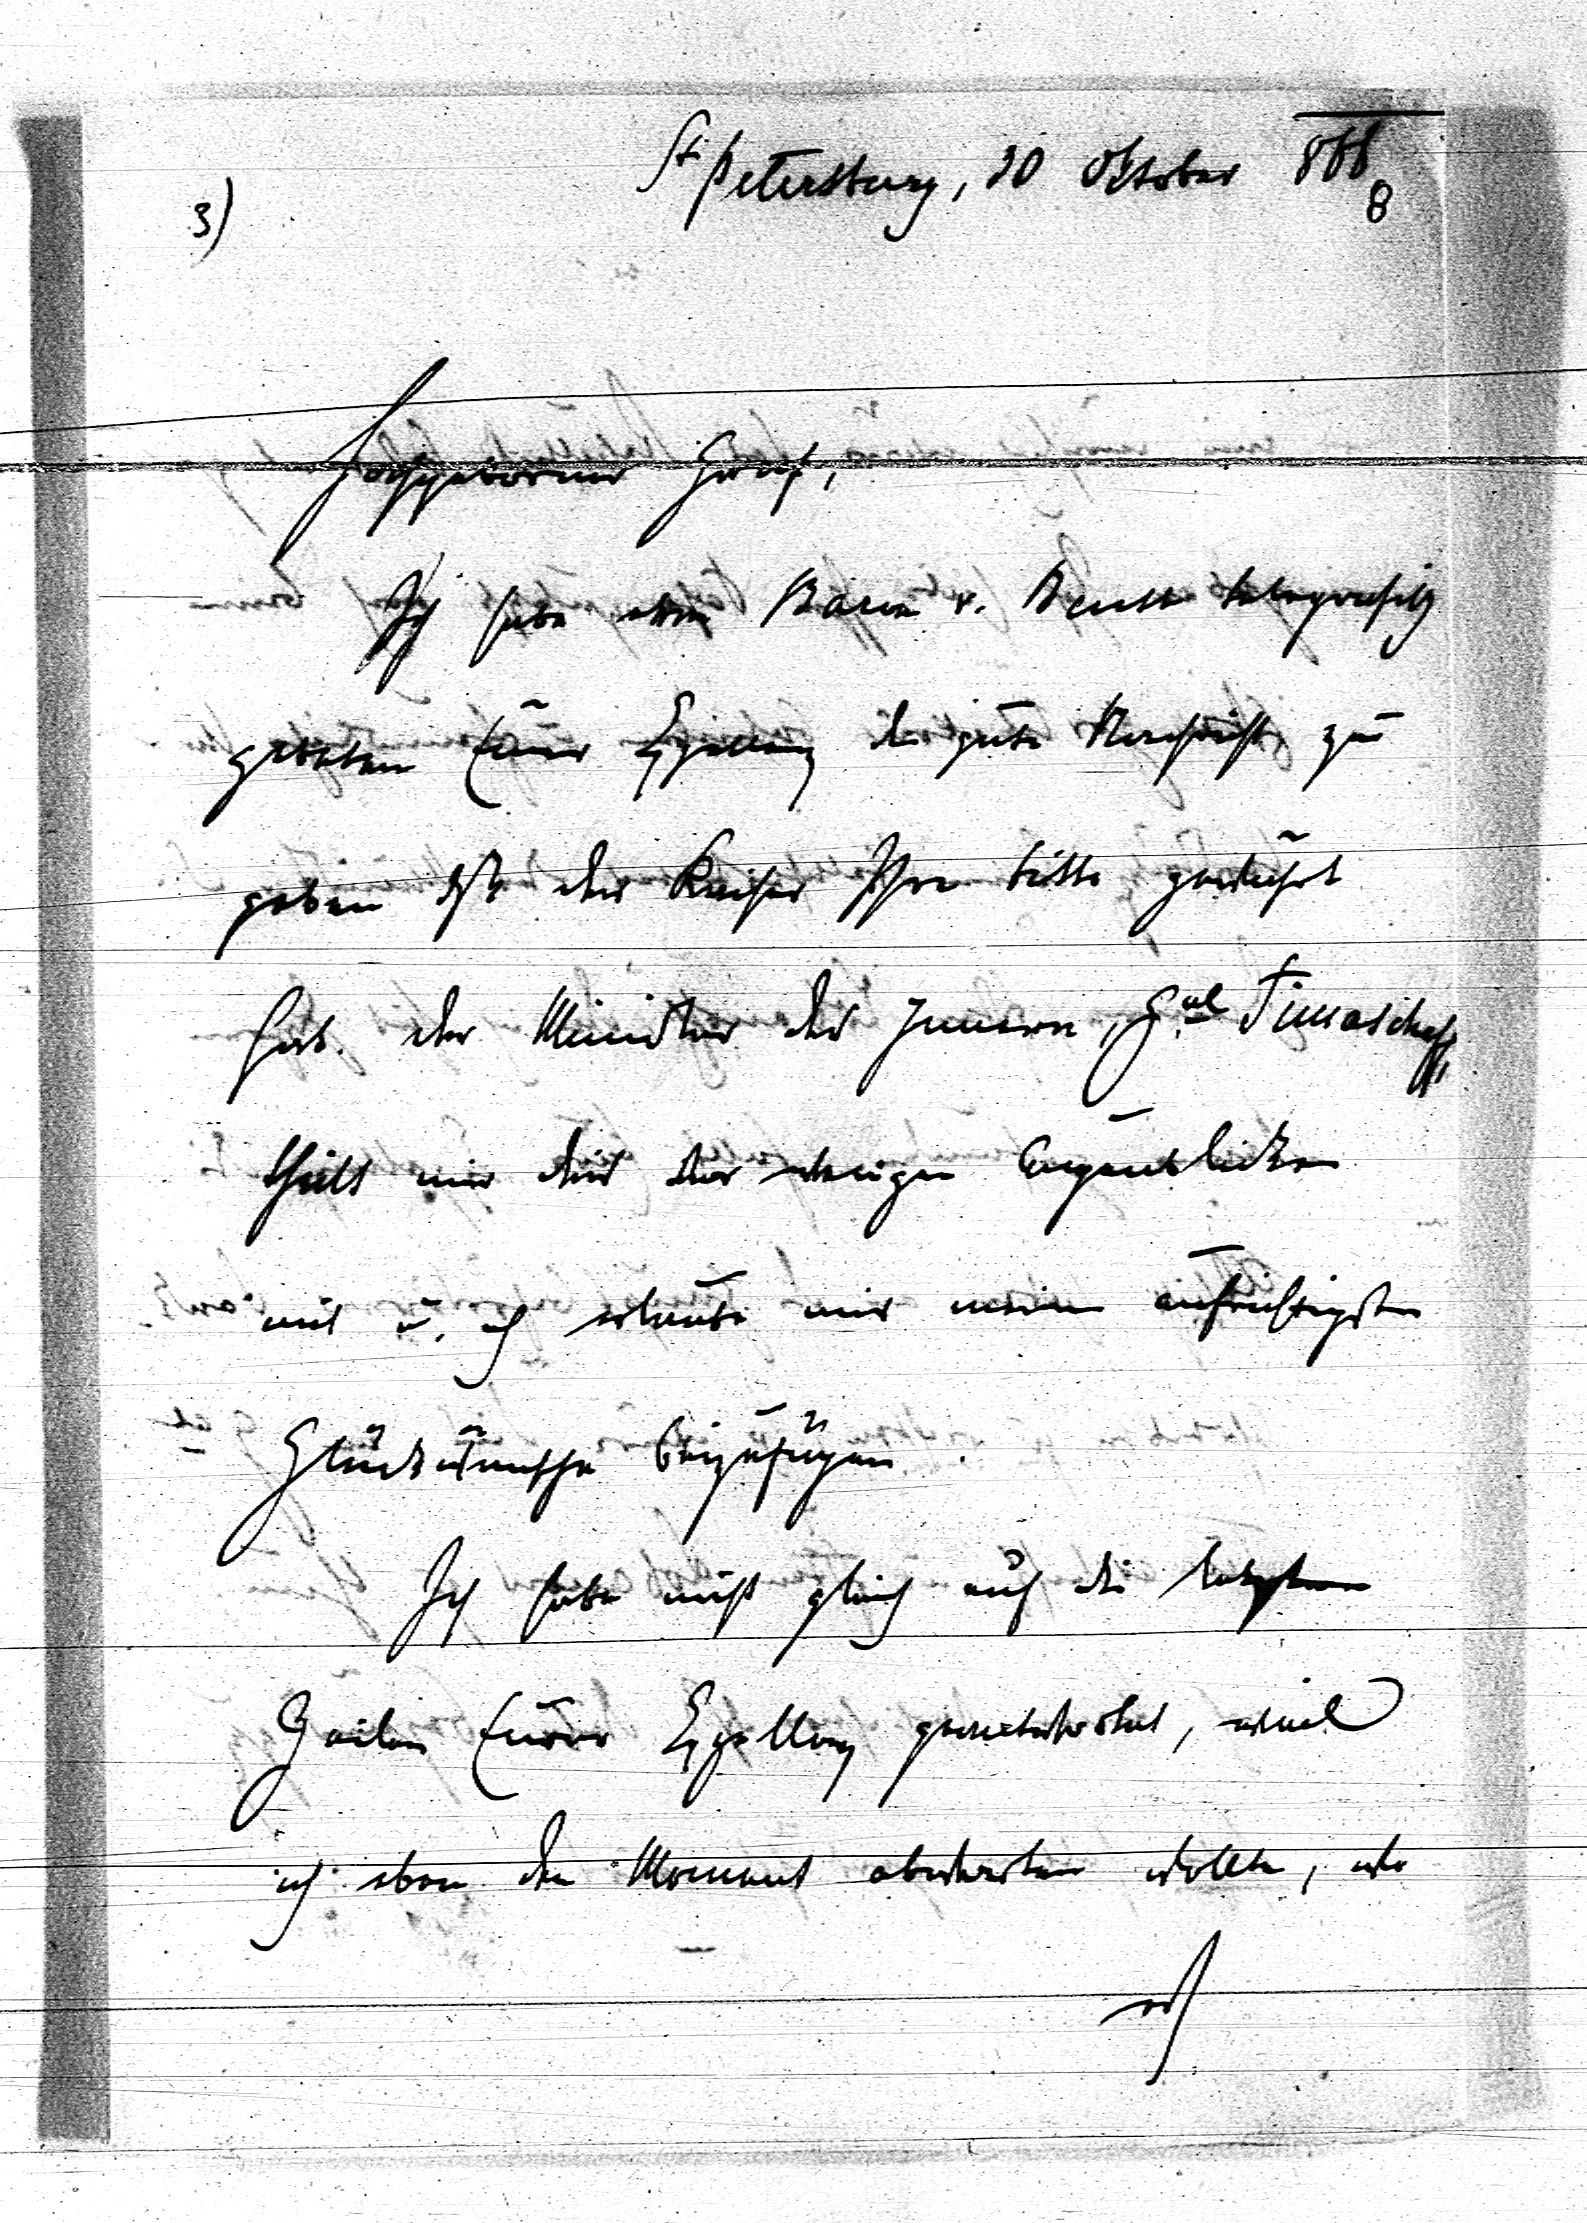 St. Petersburg, 30 Oktober 868
8
3)
Hochgeborner Graf,
Ich habe den Baron v. Beust telegrafisch
gebeten Eurer Exzellenz die gute Nachricht zu
geben dß der Kaiser Ihre bitte gewährt
hat. der Minister des Innern, Gal Timascheff,
theilt mir dies vor wenigen Augenblicken
mit u. ich erlaube mir meine aufrichtigsten
Glückwünsche beizufügen.
Ich habe nicht gleich auf die letzten
Zeilen Eurer Exzellenz geantwortet, weil
ich eben den Moment abwarten wollte, wo
ich